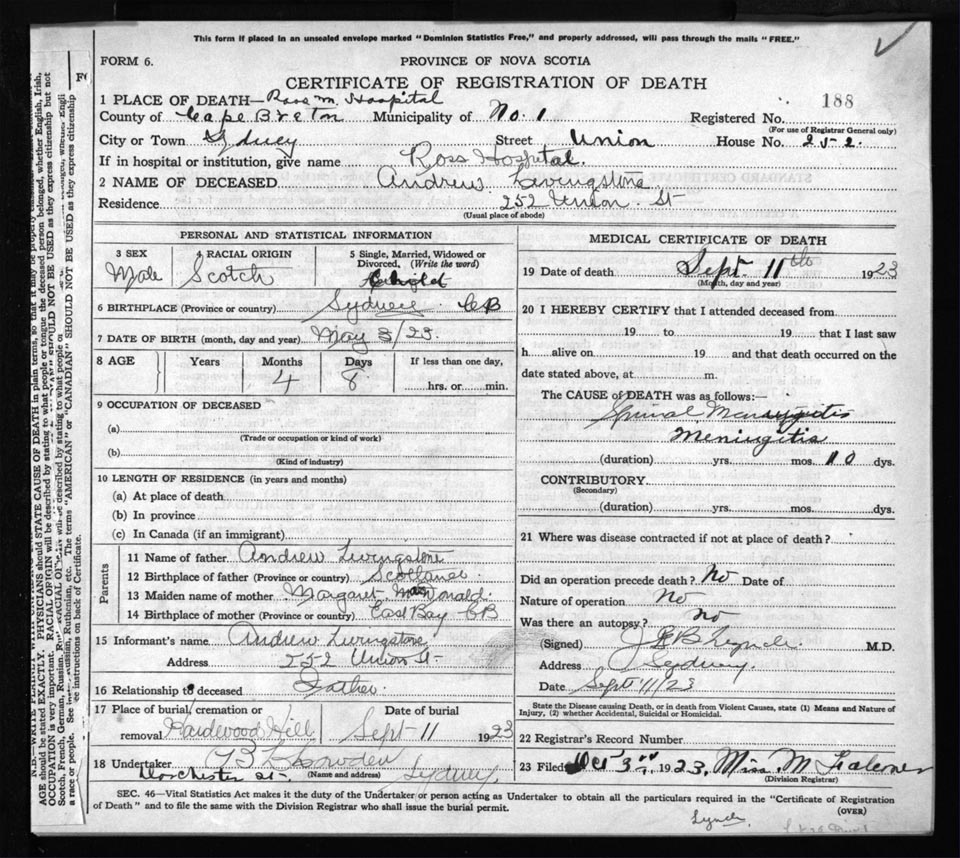 This form if placed in an unsealed envelope marked "Dominion Statistics Free," and properly addressed, will pass through the mails "FREE."
FORM 6.
PROVINCE OF NOVA SCOTIA
CERTIFICATE OF REGISTRATION OF DEATH
188
1 PLACE OF DEATH— Ross M. Hospital
County of Cape Breton Municipality of No. 1 Registered No.
(For use of Registrar General only)
City or Town Sydney Street Union House No. 252.
If in hospital or institution, give name Ross Hospital.
2 NAME OF DECEASED Andrew Livingstone
Residence 252 Union St
(Usual place of abode)
PERSONAL AND STATISTICAL INFORMATION
3 SEX 4 RACIAL ORIGIN 5 Single, Married, Widowed or Divorced, (Write the word)
Male Scotch Child
6 BIRTHPLACE (Province or country) Sydney CB
7 DATE OF BIRTH (month, day and year) May 3/23.
8 AGE Years Months Days If less than one day,
4 8 hrs. or min.
9 OCCUPATION OF DECEASED
(a)
(Trade or occupation or kind of work)
(b)
(Kind of industry)
10 LENGTH OF RESIDENCE (in years and months)
(a) At place of death
(b) In province
(c) In Canada (if an immigrant)
Parents
11 Name of father Andrew Livingstone
12 Birthplace of father (Province or country) Scotland.
13 Maiden name of mother Margaret McDonald
14 Birthplace of mother (Province or country) East Bay CB
15 Informant's name Andrew Livingstone
Address 252 Union St.
16 Relationship to deceased Father.
17 Place of burial, cremation or removal Hardwood Hill Date of burial Sept 11 1923
18 Undertaker Dorchester St.
(Name and address) Sydney
MEDICAL CERTIFICATE OF DEATH
19 Date of death Sept. 11th 1923
(Month, day and year)
20 I HEREBY CERTIFY that I attended deceased from
19 to 19 that I last saw
h alive on 19 and that death occurred on the
date stated above, at m.
The CAUSE of DEATH was as follows:—
Spinal Meningitis
Meningitis
(duration) yrs. mos. 10 dys.
CONTRIBUTORY
(Secondary)
(duration) yrs. mos. dys.
21 Where was disease contracted if not at place of death?
Did an operation precede death? No Date of
Nature of operation No
Was there an autopsy? No
(Signed) Lynch M.D.
Address Sydney.
Date Sept 11/23
State the Disease causing Death, or in death from Violent Causes, state (1) Means and Nature of Injury, (2) whether Accidental, Suicidal or Homicidal.
22 Registrar's Record Number
23 Filed Oct 3rd, 1923, Miss M
(Division Registrar)
SEC. 46—Vital Statistics Act makes it the duty of the Undertaker or person acting as Undertaker to obtain all the particulars required in the "Certificate of Registration
of Death" and to file the same with the Division Registrar who shall issue the burial permit.
(OVER)
Lynch